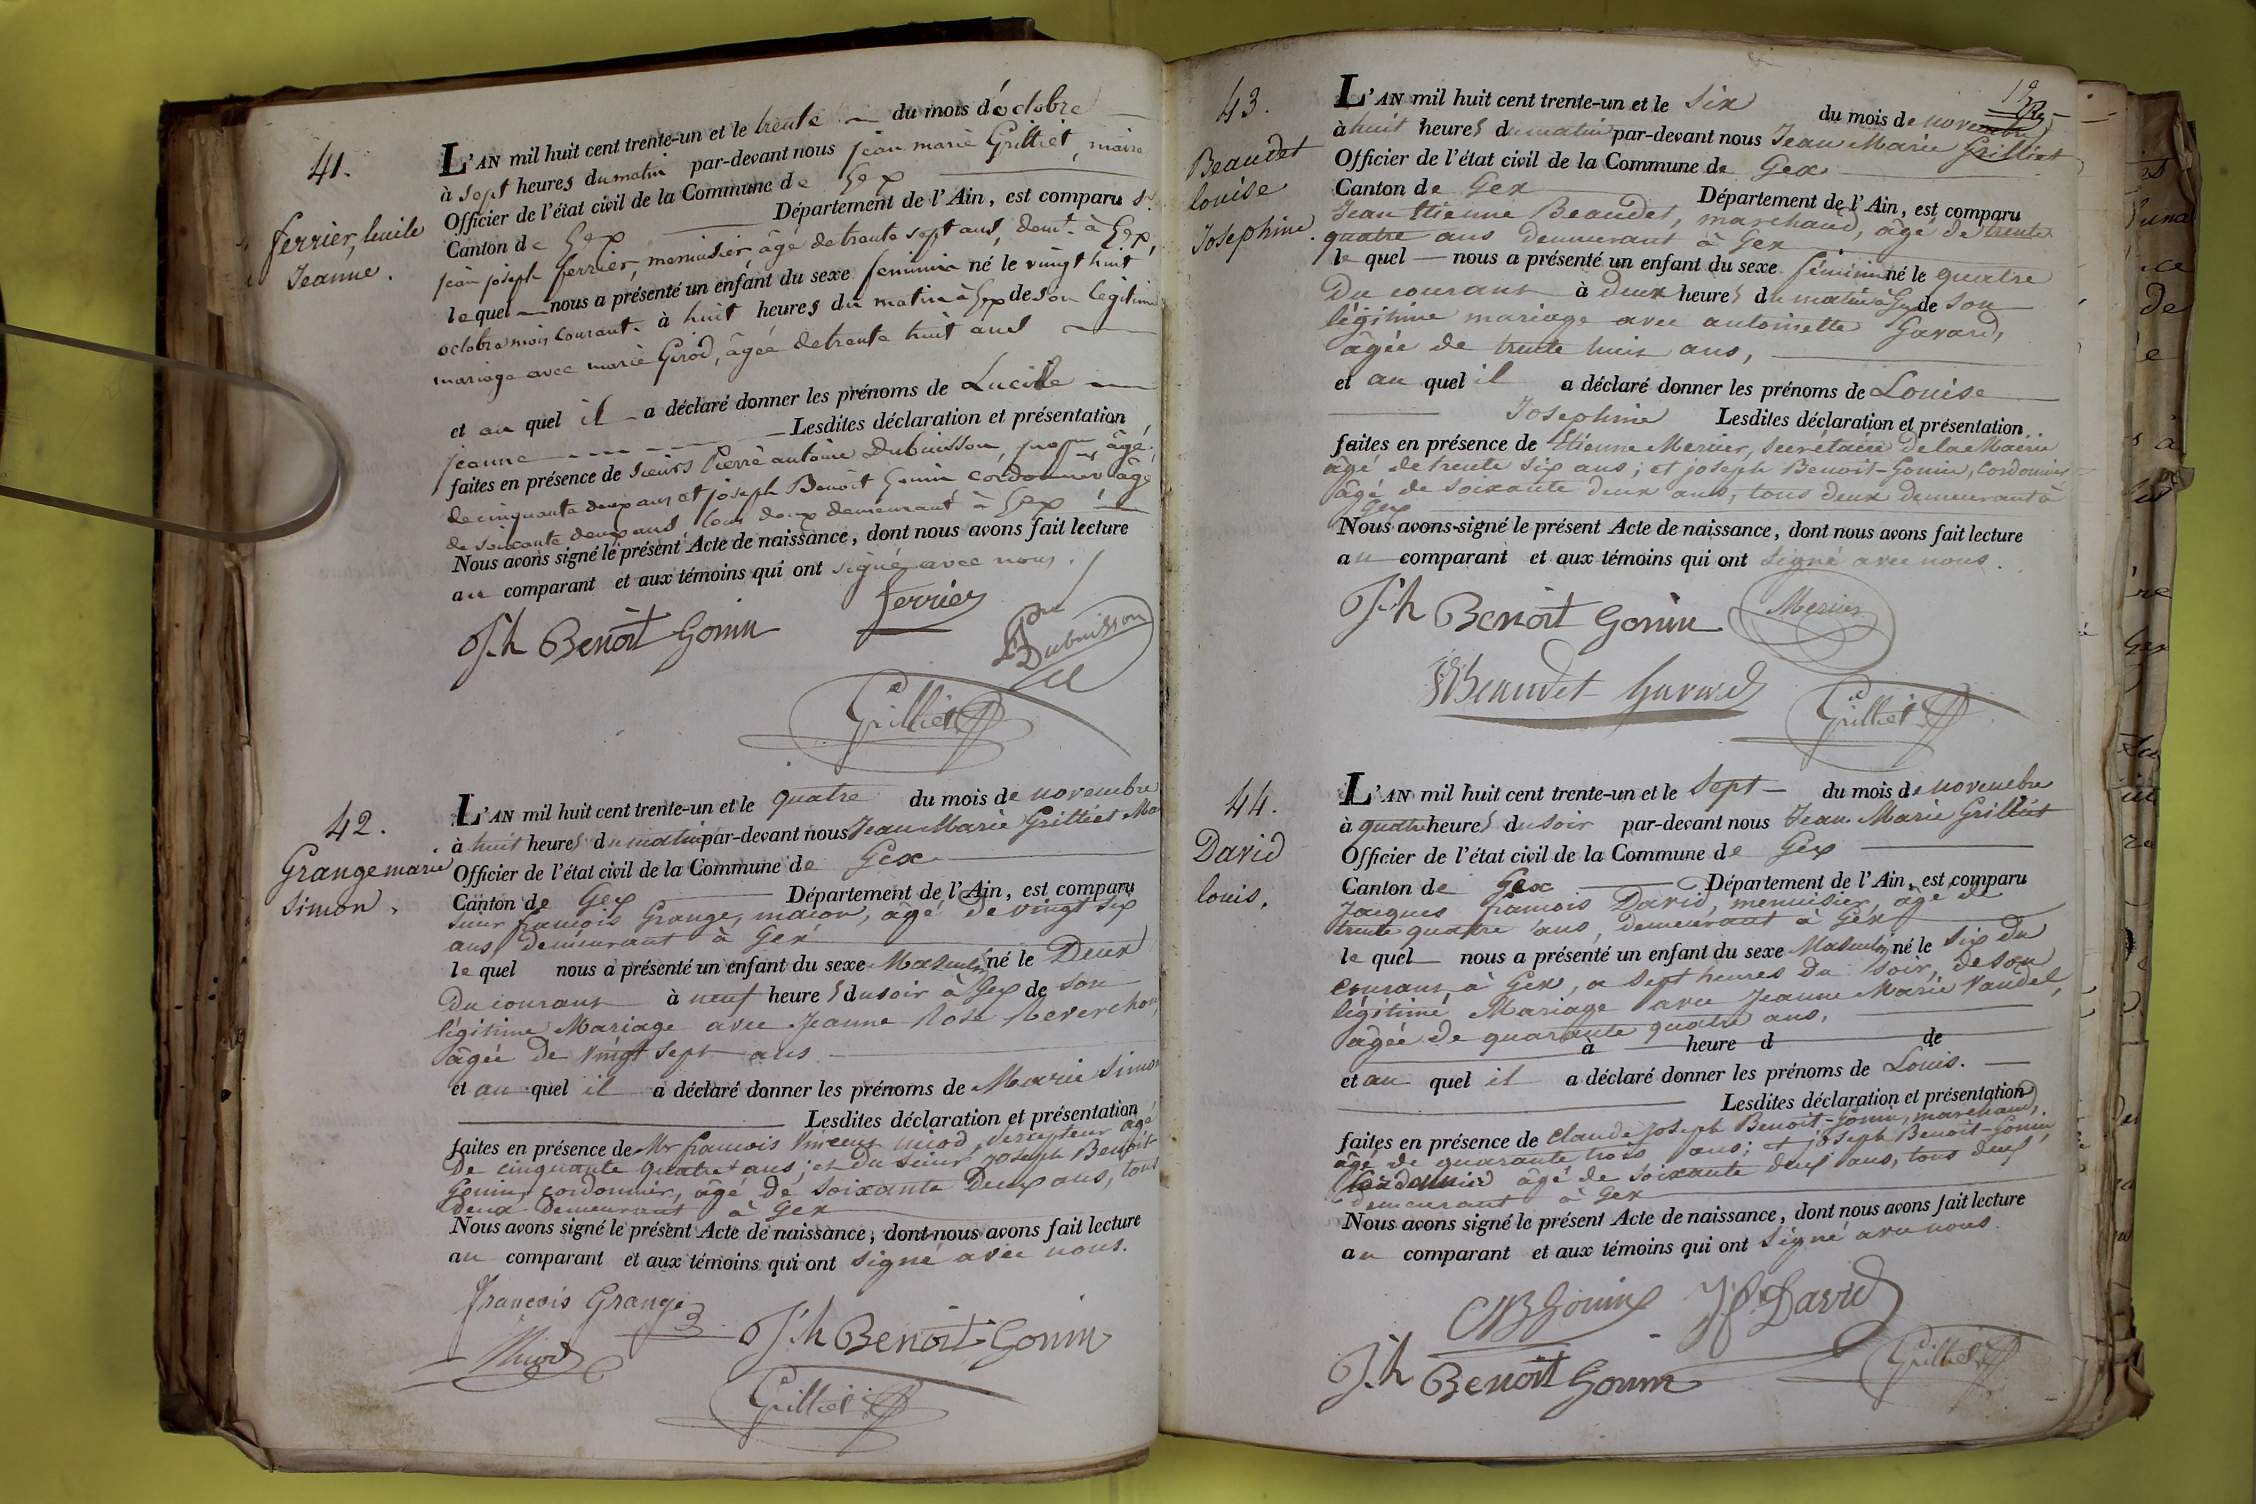 41.
ferrier, lucile
Jeanne.
L'AN mil huit cent trente-un et le trente du mois d'octobre
à sept heures du matin par-devant nous jean marie Grilliet, maire
Officier de l'état civil de la Commune de Gex
Canton de Gex Département de l'Ain, est comparu sr.
jean joseph ferrier, menuisier, âgé de trente sept ans, demt. à Gex,
lequel nous a présenté un enfant du sexe feminin né le vingt huit
octobre mois courant à huit heures du matin à Gex de son legitime
mariage avec marie Girod, âgée de trente huit ans
et au quel il a déclaré donner les prénoms de Lucile
jeanne Lesdites déclaration et présentation
faites en présence de sieurs Pierre antoine Dubuisson, âgé
de cinquante deux ans et joseph Benoit Gonin cordonnier âgé
de soixante deux ans tous deux demeurant à Gex
Nous avons signé le présent Acte de naissance, dont nous avons fait lecture
au comparant et aux témoins qui ont signé avec nous.
ferrier
J.h Benoit Gonin
Dubuisson
Grilliet
42.
Grange marie
simon.
L'AN mil huit cent trente-un et le quatre du mois de novembre
à huit heures du matin par-devant nous Jean Marie Grilliet Ma
Officier de l'état civil de la Commune de Gex
Canton de Gex Département de l'Ain, est comparu
sieur françois Grange, maçon, âgé de vingt six
ans demeurant à Gex
lequel nous a présenté un enfant du sexe Masculin né le Deux
Du courant à neuf heures du soir à Gex de son
légitime Mariage avec Jeanne Rose Reverchon,
âgée de vingt sept ans
et au quel il a déclaré donner les prénoms de Marie Simon
Lesdites déclaration et présentation
faites en présence de Mr françois Vincent Miod Percepteur âgé
De cinquante quatre ans; et du sieur joseph Benoit
Gonin, cordonnier, âgé de soixante Deux ans, tous
deux demeurant à Gex
Nous avons signé le présent Acte de naissance, dont nous avons fait lecture
au comparant et aux témoins qui ont signé avec nous.
françois Grange
Miod J.h Benoit Gonin
Grilliet
43.
Beaudet
louise
Josephine.
L'AN mil huit cent trente-un et le six du mois de novembre
à huit heures du matin par-devant nous Jean Marie Grilliet
Officier de l'état civil de la Commune de Gex
Canton de Gex Département de l'Ain, est comparu
Jean Etienne Beaudet, marchand, âgé de trente
quatre ans demeurant à Gex
le quel nous a présenté un enfant du sexe féminin né le quatre
Du courant à deux heures du matin à Gex de son
légitime mariage avec antoinette Gavard,
âgée de trente huit ans,
et au quel il a déclaré donner les prénoms de Louise
Josephine Lesdites déclaration et présentation
faites en présence de Etienne Mercier, secrétaire de la Mairie
âgé de trente six ans; et joseph Benoit-Gonin, cordonnier
âgé de soixante deux ans, tous deux demeurant à
Gex
Nous avons-signé le présent Acte de naissance, dont nous avons fait lecture
au comparant et aux témoins qui ont signé avec nous.
J.h Benoit Gonin Mercier
Beaudet Gavard
Grilliet
44.
David
louis.
L'AN mil huit cent trente-un et le sept du mois de novembre
à quatre heures du soir par-devant nous Jean Marie Grilliet
Officier de l'état civil de la Commune de Gex
Canton de Gex Département de l'Ain, est comparu
Jacques françois David, menuisier, âgé de
trente quatre ans, demeurant à Gex
le quel nous a présenté un enfant du sexe Masculin né le six du
courant à Gex, a sept heures du soir, de son
légitime Mariage avec Jeanne Marie Vandel,
âgée de quarante quatre ans,
à heure d de
et au quel il a déclaré donner les prénoms de Louis.
Lesdites déclaration et présentation
faites en présence de Claude joseph Benoit-Gonin, marchand,
âgé de quarante trois ans; et joseph Benoit-Gonin,
Cordonnier âgé de soixante deux ans, tous deux
demeurant à Gex
Nous avons signé le présent Acte de naissance, dont nous avons fait lecture
au comparant et aux témoins qui ont signé avec nous.
CJBGonin Jf David
J.h Benoit Gonin Grilliet